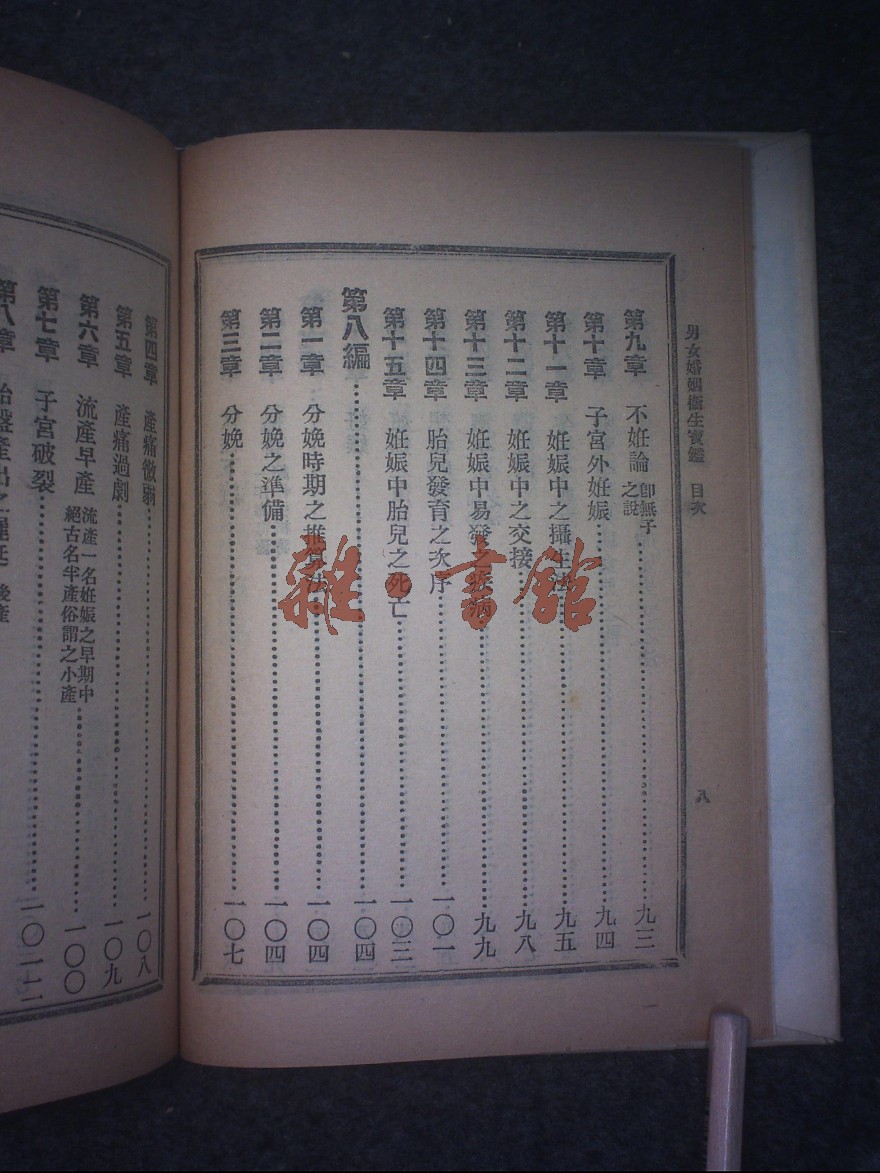 男女婚姻衞生寶鑑 目次 八
第九章 不姙論 卽無子之說 九三
第十章 子宮外姙娠 九四
第十一章 姙娠中之攝生法 九五
第十二章 姙娠中之交接 九八
第十三章 姙娠中易發之疾病 九九
第十四章 胎兒發育之次序 一〇一
第十五章 姙娠中胎兒之死亡 一〇三
第八編 一〇四
第一章 分娩時期之推算法 一〇四
第二章 分娩之準備 一〇四
第三章 分娩 一〇七
第四章 產痛微弱 一〇八
第五章 產痛過劇 一〇九
第六章 流產早產 流產一名姙娠之早期中絕古名半產俗謂之小產 一〇〇
第七章 子宮破裂
第八章 胎盤產出之遲延 後產
雜·書館